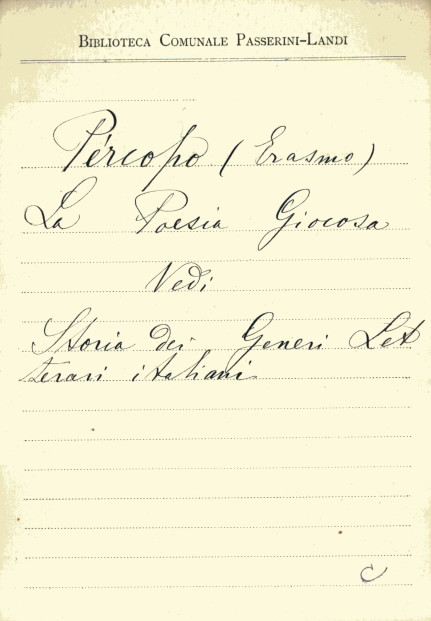 BIBLIOTECA COMUNALE PASSERINI-LANDI
Pèrcopo (Erasmo)
La Poesia Giocosa
Vedi
Storia dei Generi Let
terari italiani
C